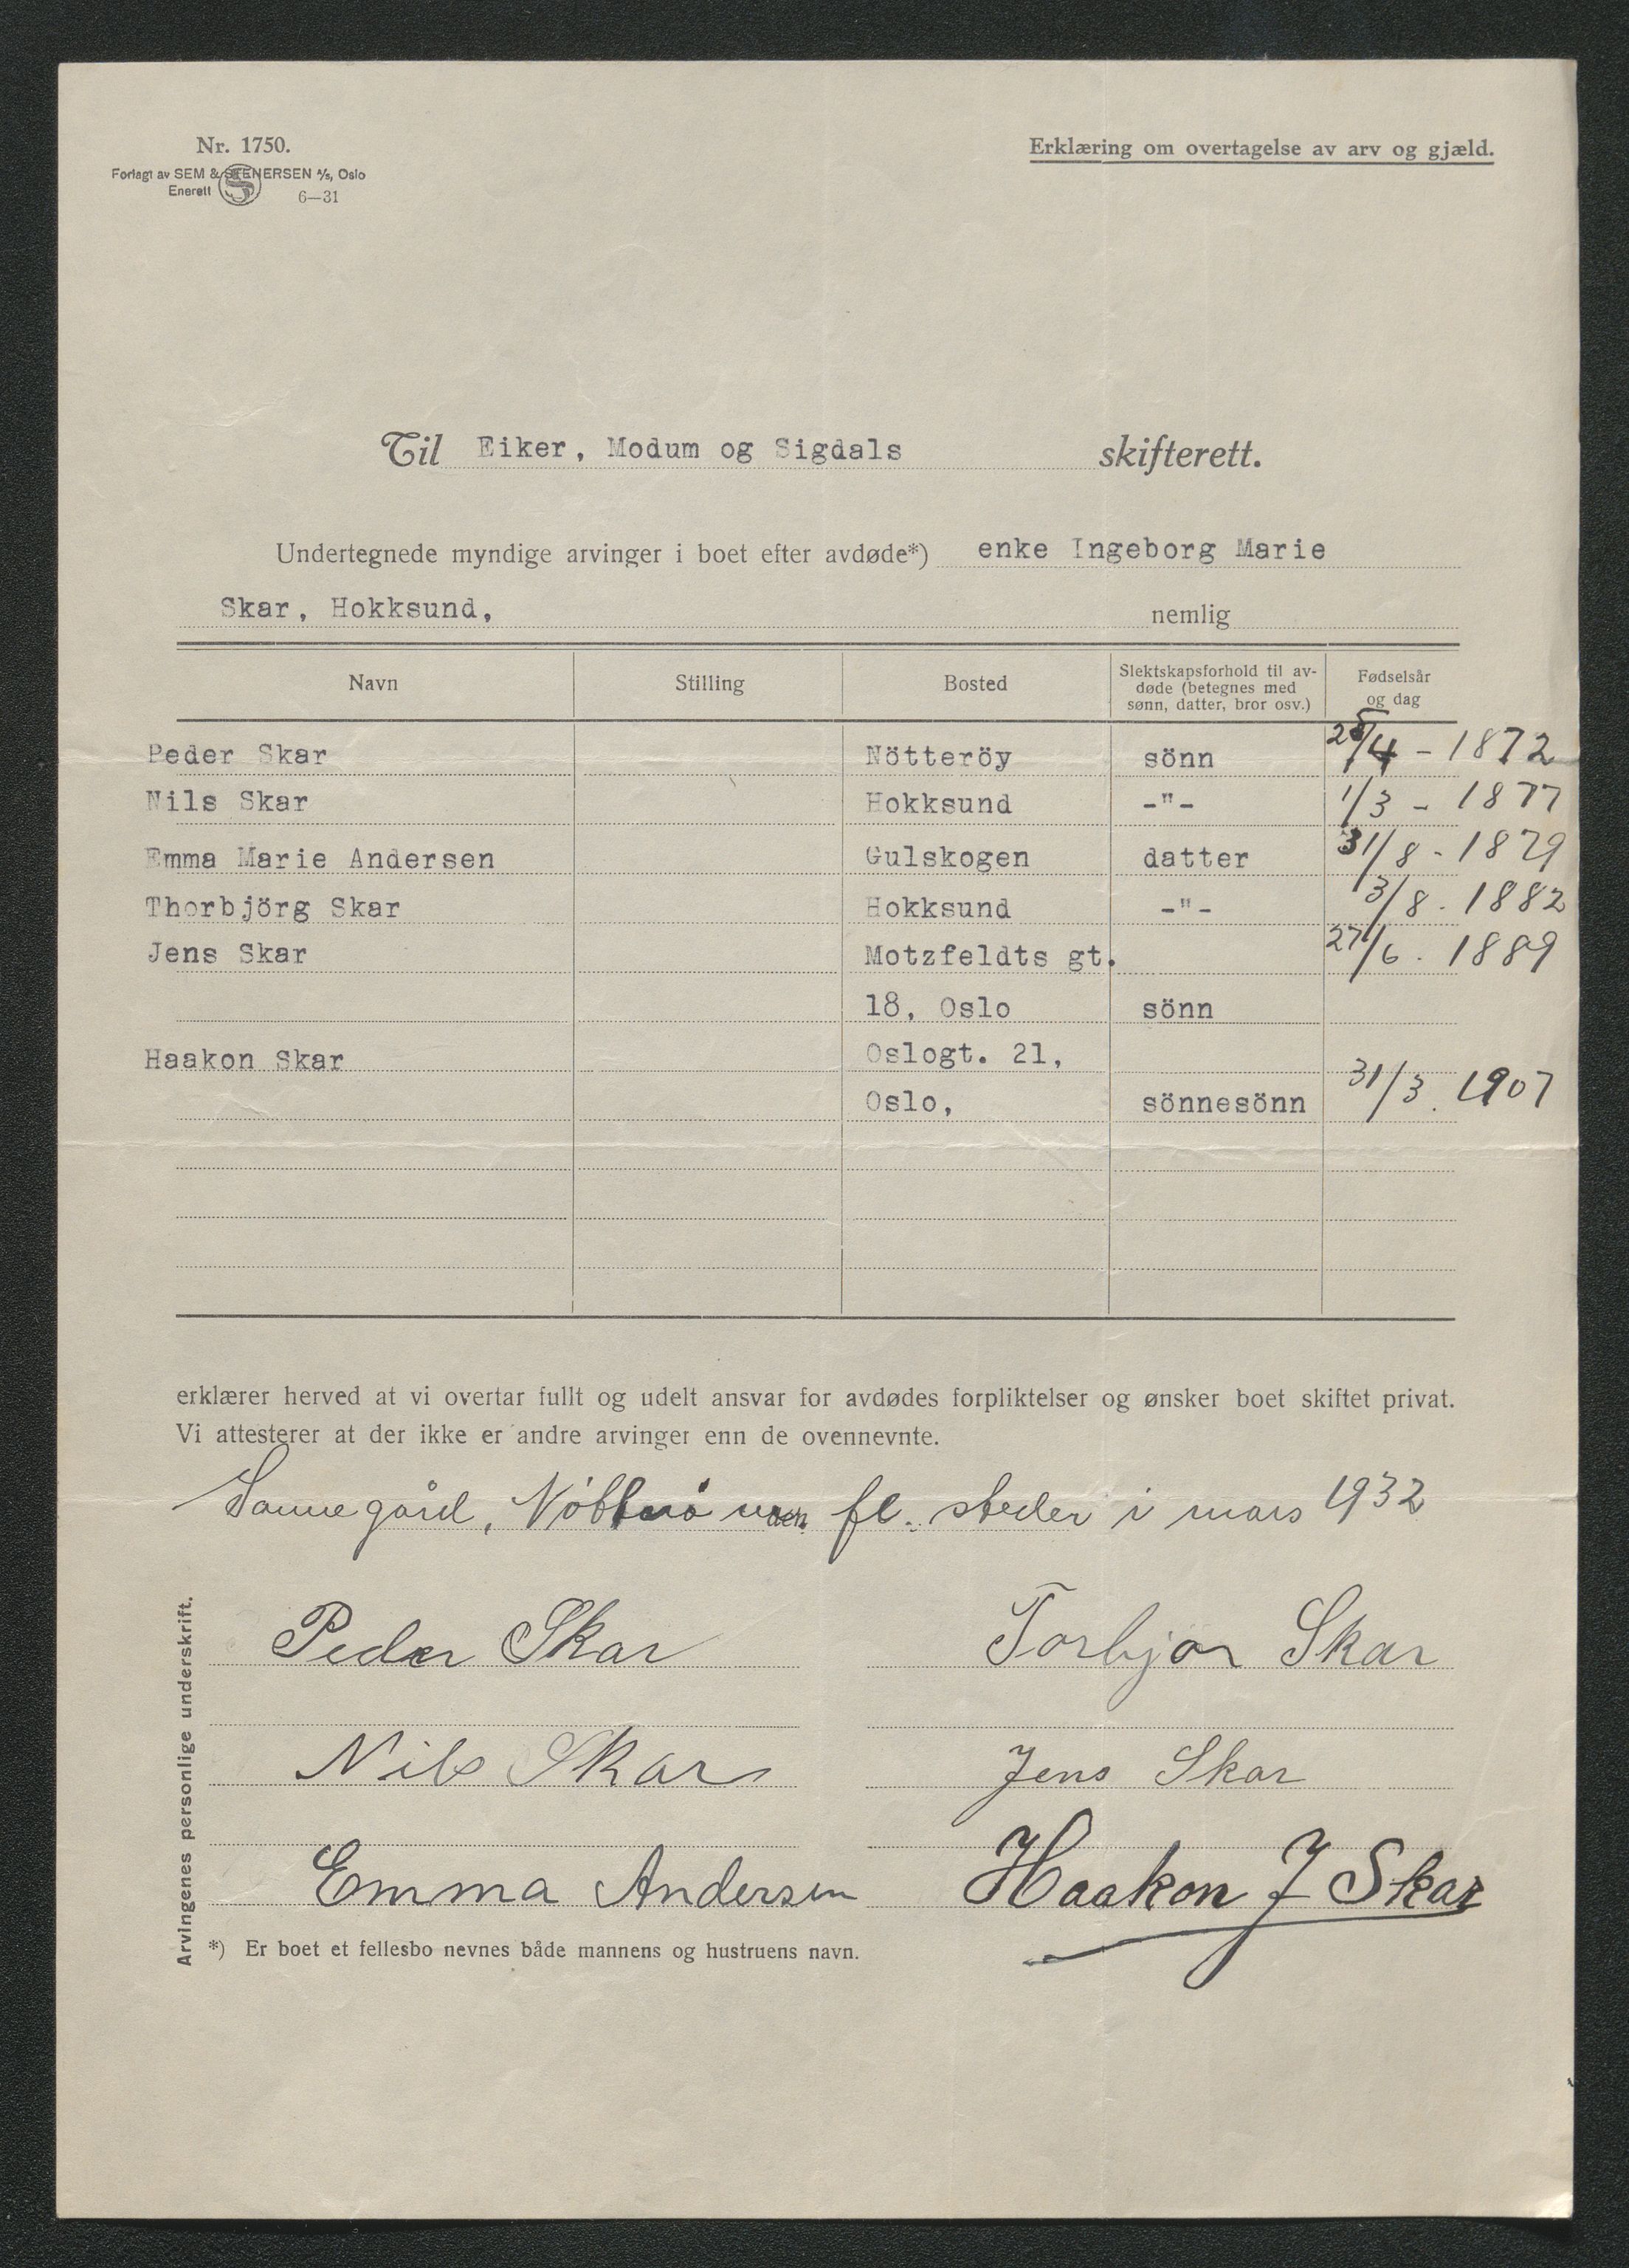 Nr. 1750.
Forlagt av SEM & STENERSEN A/S, Oslo
Enerett 6—31
Erklæring om overtagelse av arv og gjæld.
Til Eiker, Modum og Sigdals skifterett.
Undertegnede myndige arvinger i boet efter avdøde*) enke Ingeborg Marie
Skar, Hokksund, nemlig
Navn Stilling Bosted Slektskapsforhold til av-
døde (betegnes med
sønn, datter, bror osv.) Fødselsår
og dag
Peder Skar Nötteröy sönn /4 - 1872
Nils Skar Hokksund -"- 1/3 - 1877
Emma Marie Andersen Gulskogen datter 31/8 - 1879
Thorbjörg Skar Hokksund -"- 3/8 . 1882
Jens Skar Motzfeldts gt. 27/6 . 1889
18, Oslo sönn
Haakon Skar Oslogt. 21,
Oslo, sönnesönn 31/3 . 1907
erklærer herved at vi overtar fullt og udelt ansvar for avdødes forpliktelser og ønsker boet skiftet privat.
Vi attesterer at der ikke er andre arvinger enn de ovennevnte.
fl. steder i mars 1932
Arvingenes personlige underskrift.
Peder Skar Torbjør Skar
Nils Skar Jens Skar
Emma Andersen Haakon J Skar
*) Er boet et fellesbo nevnes både mannens og hustruens navn.